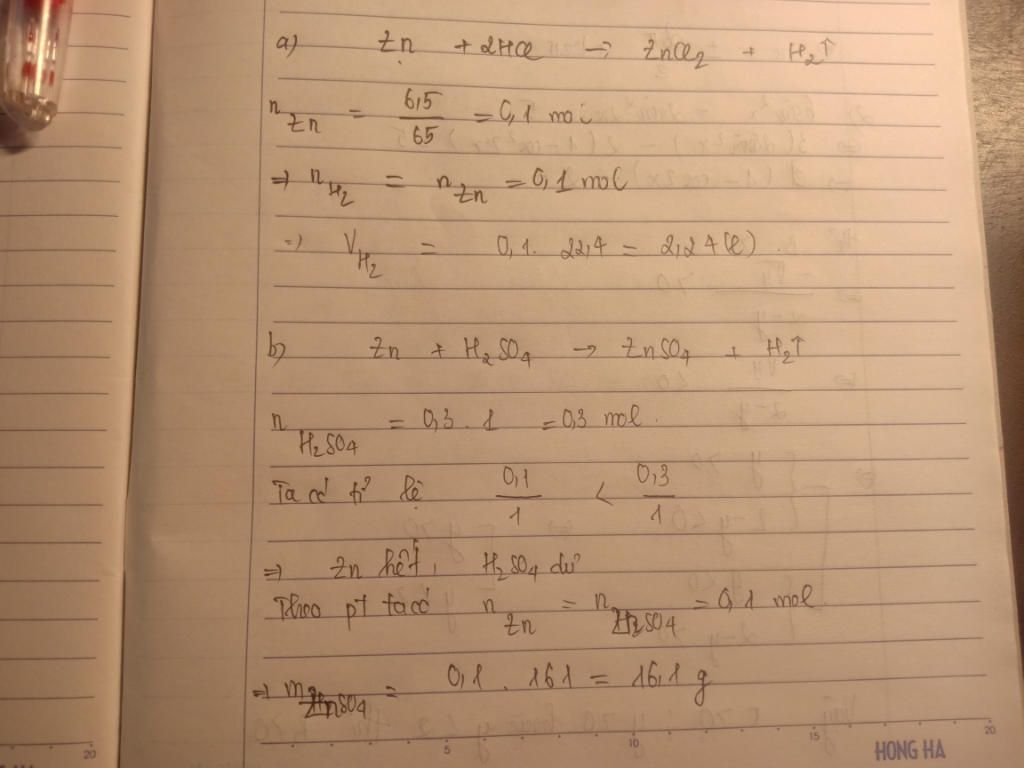 a) Zn + 2HCl → ZnCl₂ + H₂↑
n Zn = 6,5/65 = 0,1 mol
⇒ n H₂ = n Zn = 0,1 mol
⇒ V H₂ = 0,1. 22,4 = 2,24(l)
b) Zn + H₂SO₄ → ZnSO₄ + H₂↑
n H₂SO₄ = 0,3 . 1 = 0,3 mol.
Ta có tỉ lệ 0,1/1 < 0,3/1
⇒ Zn hết, H₂SO₄ dư
Theo pt ta có n Zn = n ZnSO₄ = 0,1 mol
⇒ m ZnSO₄ = 0,1 . 161 = 16,1 g
20 5 10 15 20
HONG HA